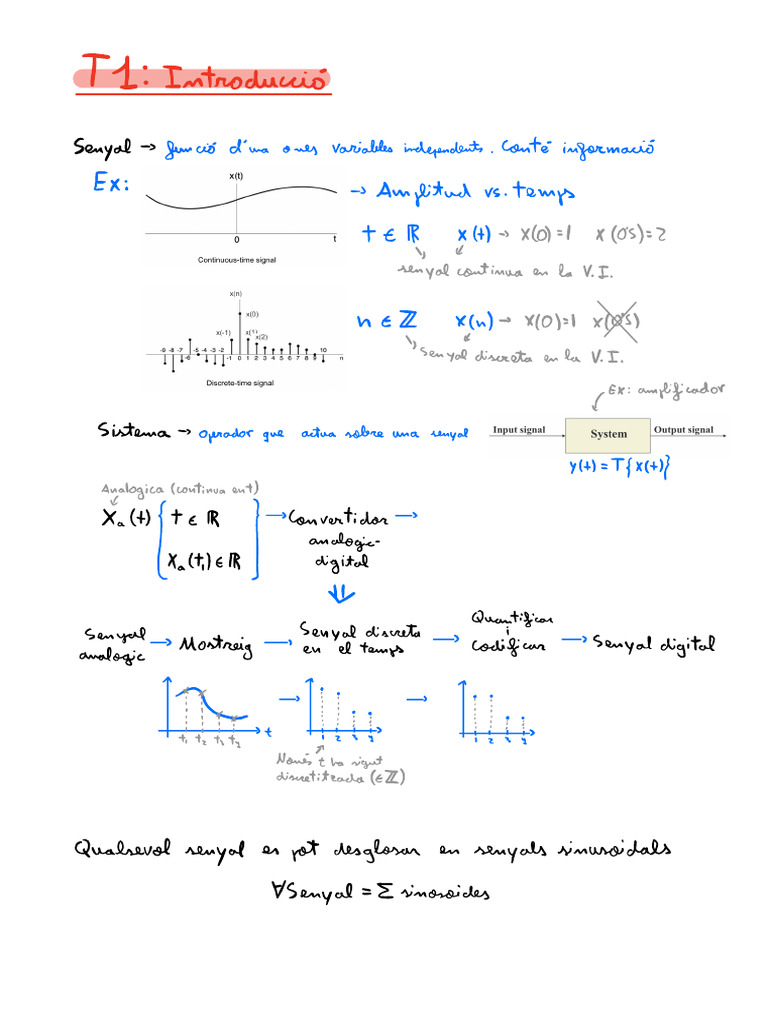 T1: Introducció
Senyal → funció d'una o mes variables independents. Conté informació
Ex:
x(t)
0
t
Continuous-time signal
→ Amplitud vs. temps
t ∈ ℝ x(t) → x(0)=1 x(0'5)=2
senyal continua en la V.I.
x(n)
x(0)
x(-1)
x(1)
x(2)
-9 -8 -7 -6 -5 -4 -3 -2 -1 0 1 2 3 4 5 6 7 8 9 10 n
Discrete-time signal
n ∈ ℤ x(n) → x(0)=1 x(0'5)
Senyal discreta en la V.I.
Ex: amplificador
Sistema → operador que actua sobre una senyal
Input signal
System
Output signal
y(t) = T{x(t)}
Analogica (continua en t)
Xa(t) { t ∈ ℝ
Xa(t1) ∈ ℝ }
→ Convertidor →
analogic-
digital
⇓
Senyal
analogic
→ Mostreig →
Senyal discreta
en el temps
→ Quantificar
i
codificar
→ Senyal digital
t1 t2 t3 t4
t
→
1 2 3 4
→
1 2 3 4
Només t ha sigut
discretitzada (∈ℤ)
Qualsevol senyal es pot desglosar en senyals sinusoidals
∀Senyal = Σ sinosoides